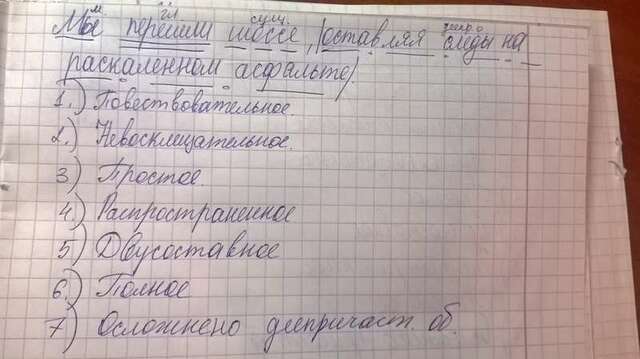 м гл сущ. дипр. о
Мы перешли шоссе, |оставляя следы на
раскаленном асфальте|.
1.) Повествовательное.
2.) Невосклицательное.
3) Простое.
4.) Распространенное
5) Двусоставное
6.) Полное
7) Осложнено деепричаст. об.